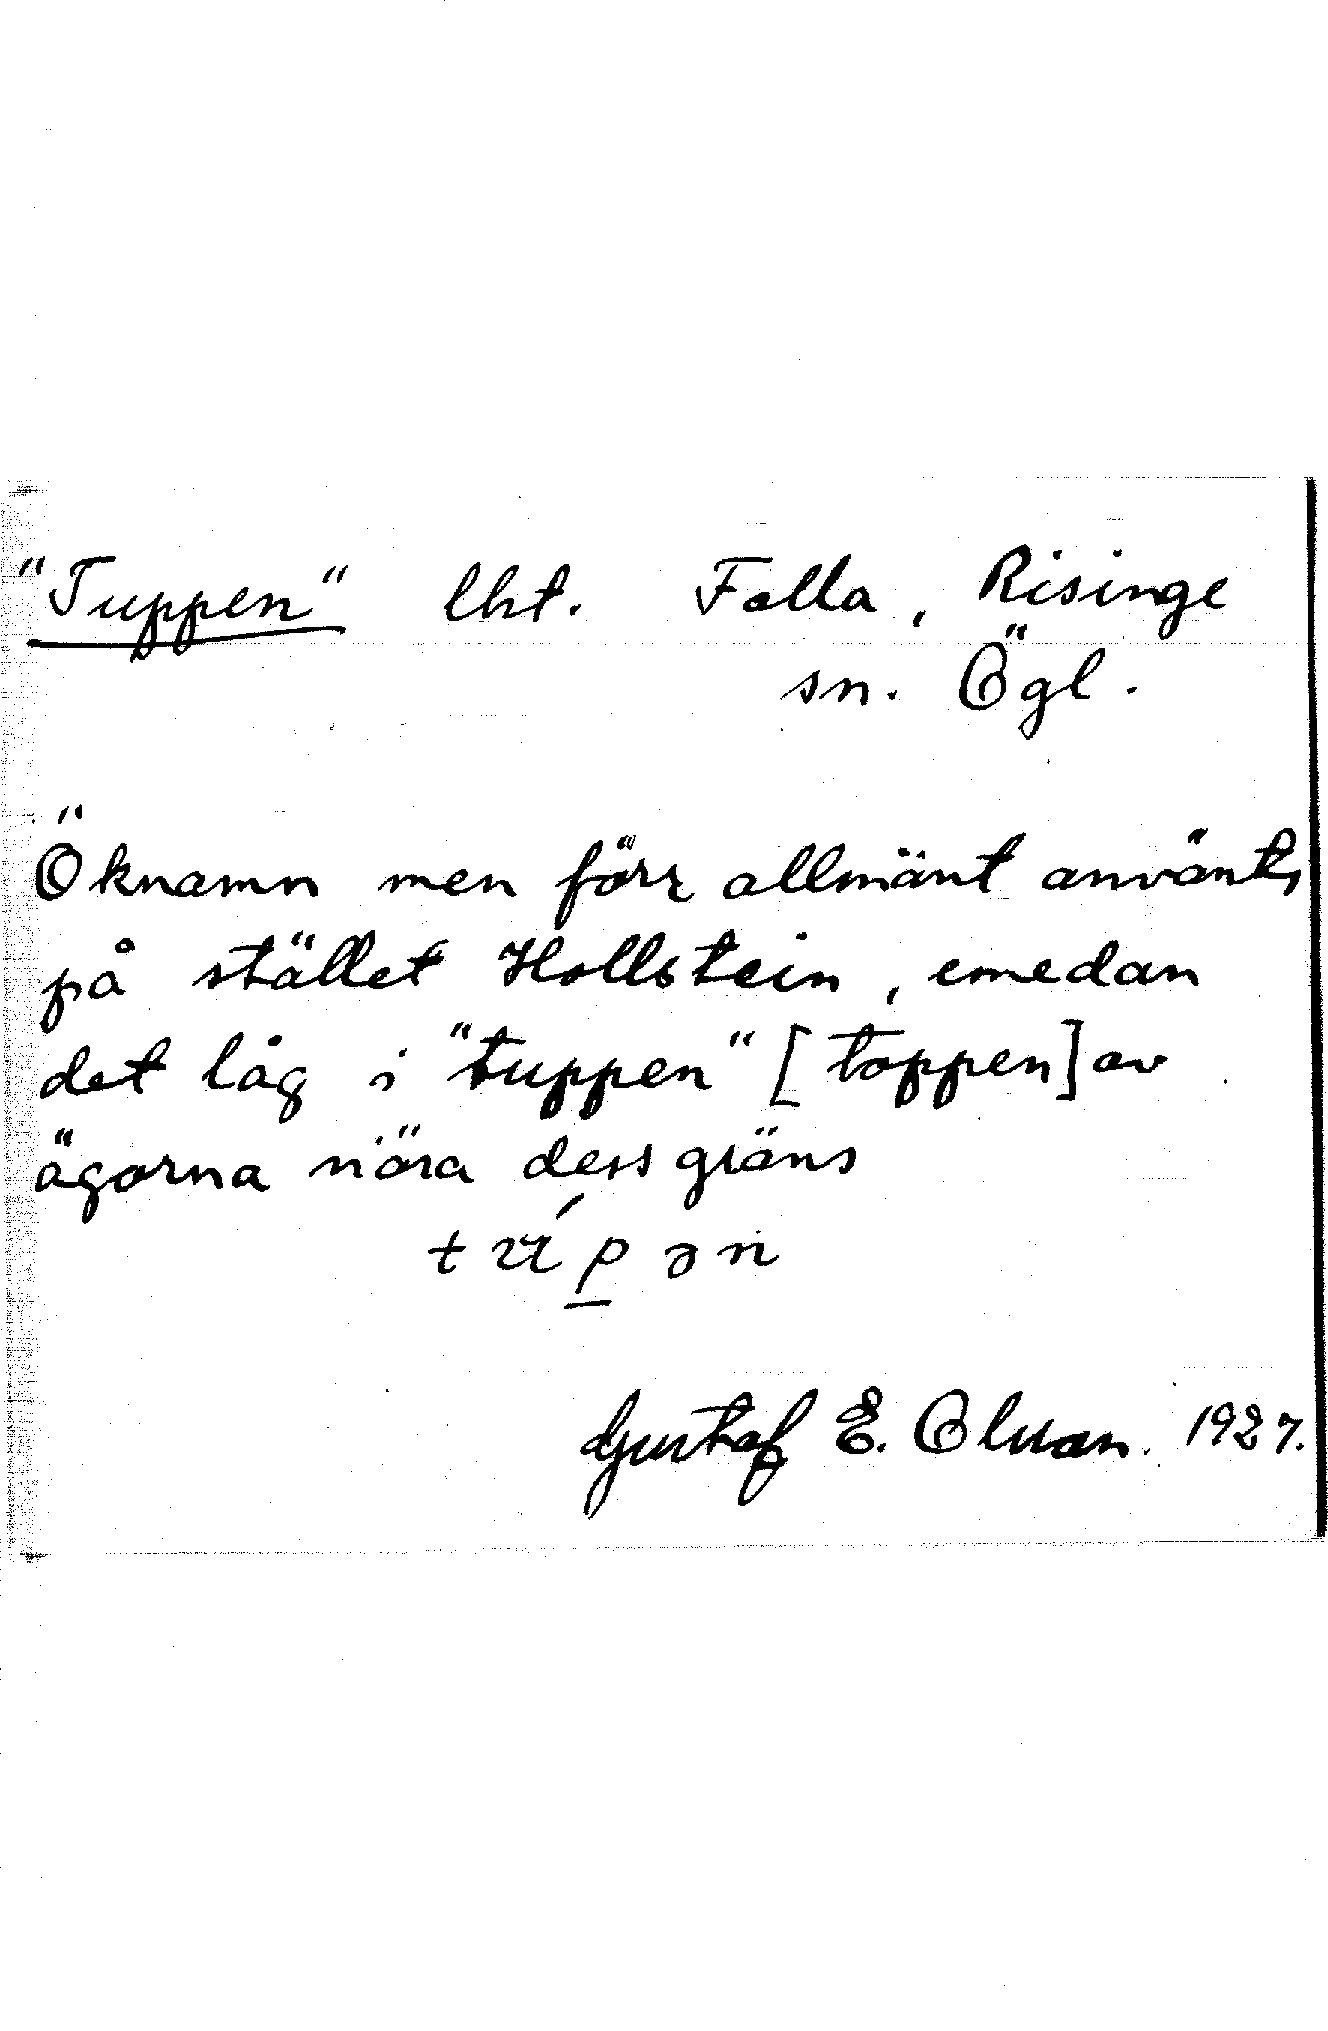 "Tuppen" lht. Falla, Risinge
sn. Ögl.
Öknamn men förr allmänt använt,
på stället Hollstein, emedan
det låg i "tuppen" [toppen] av
ägorna nära dess gräns
Gustaf E. Olsson. 1927.